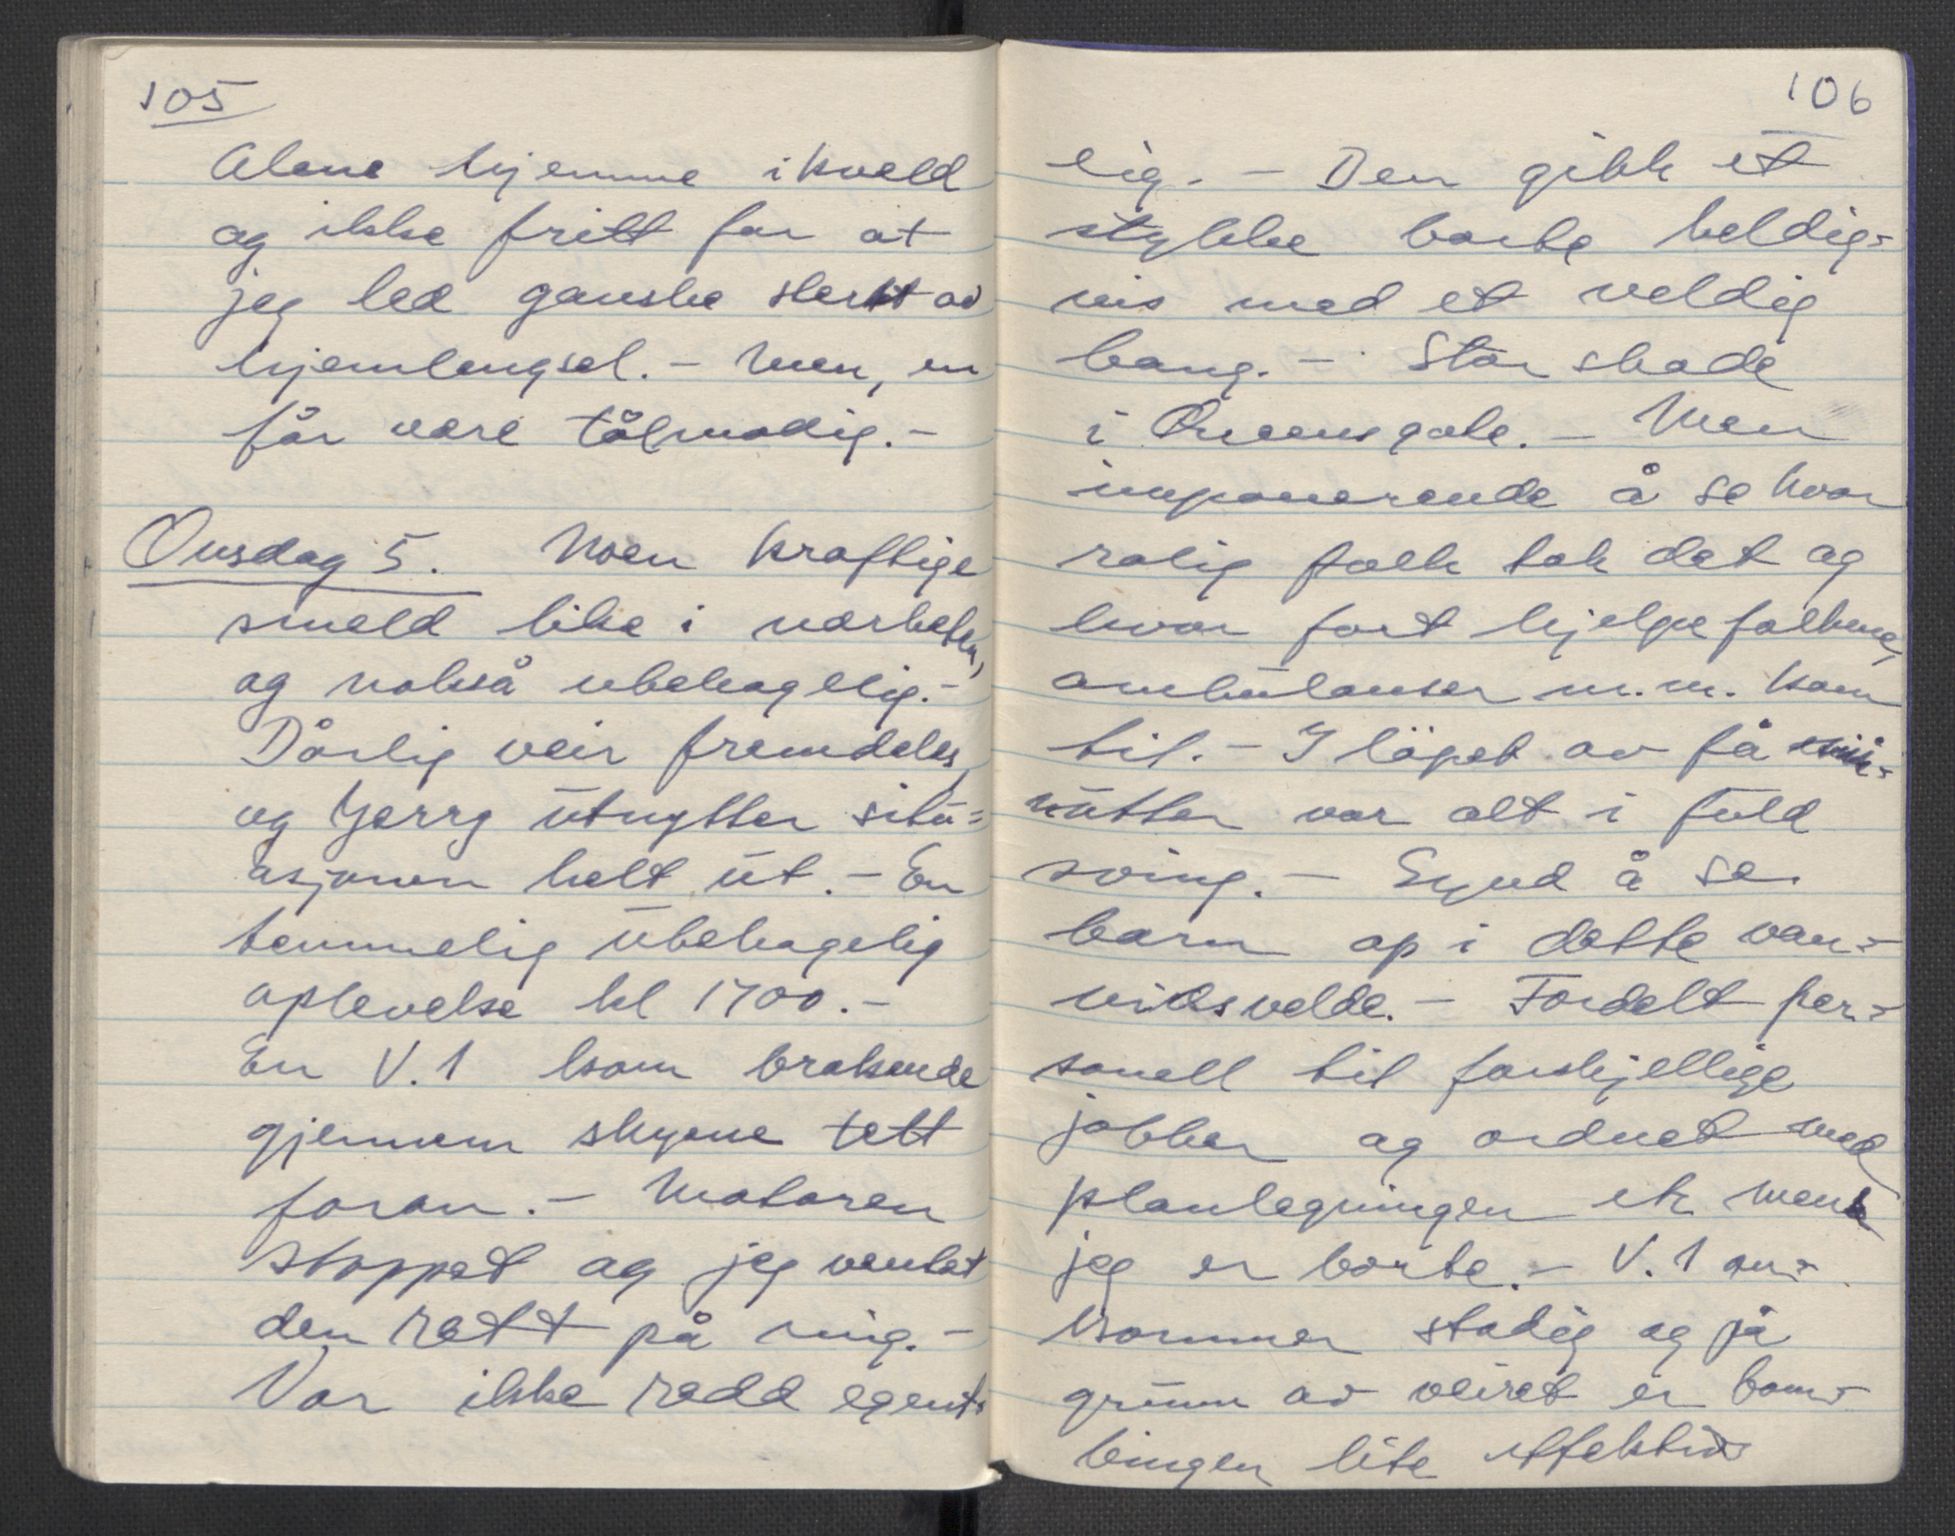 105
Alene hjemme ikveld
og ikke fritt for at
jeg led ganske sterkt av
hjemlengsel. - Men, en
får være tålmodig. -
Onsdag 5. Noen kraftige
smeld like i nærheten,
og nokså ubehagelig. -
Dårlig veir fremdeles,
og Jerry utnytter situ=
asjonen helt ut. - En
temmelig ubehagelig
oplevelse kl 1700. -
En V.1 kom brakende
gjennem skyene tett
foran. - Motoren
stoppet og jeg ventet
den rett på mig. -
Var ikke redd egent=
106
lig. - Den gikk et
stykke borte heldig=
vis med et veldig
bang. - Stor skade
i Queensgate. - Men
imponerende å se hvor
rolig folk tok det og
hvor fort hjelpefolkene,
ambulanser m.m. kom
til. - I löpet av få mi=
nutter var alt i fuld
sving. - Synd å se
barn op i dette van=
vidsvelde. - Fordelt per=
sonell til forskjellige
jobber og ordnet med
planlegningen etc mens
jeg er borte. - V.1 an=
kommer stadig og på
grunn av veiret er bom=
bingen lite effektiv